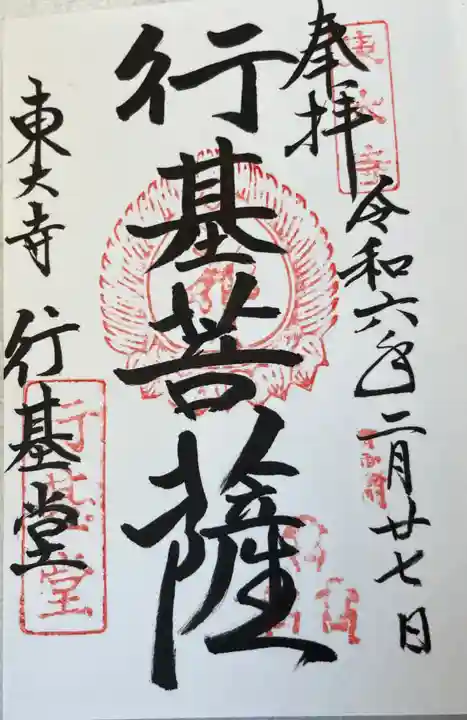 奉拝
令和六年二月廿七日
行基菩薩
東大寺 行基堂
東大寺
行基堂